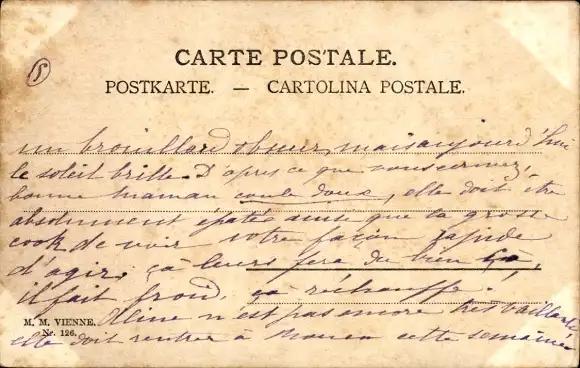 5
CARTE POSTALE.
POSTKARTE. — CARTOLINA POSTALE.
un brouillard obscur, mais aujourd'hui
le soleil brille. D'après ce que vous écrivez,
bonne maman coule doux, elle doit être
absolument épatée ainsi que la grosse
cook de voir votre façon rapide
d'agir, ça leurs fera du bien
il fait froid, ça réchauffe!
M. M. VIENNE. Aline n'est pas encore très vaillante
Nr. 126. elle doit rentrer à cette semaine